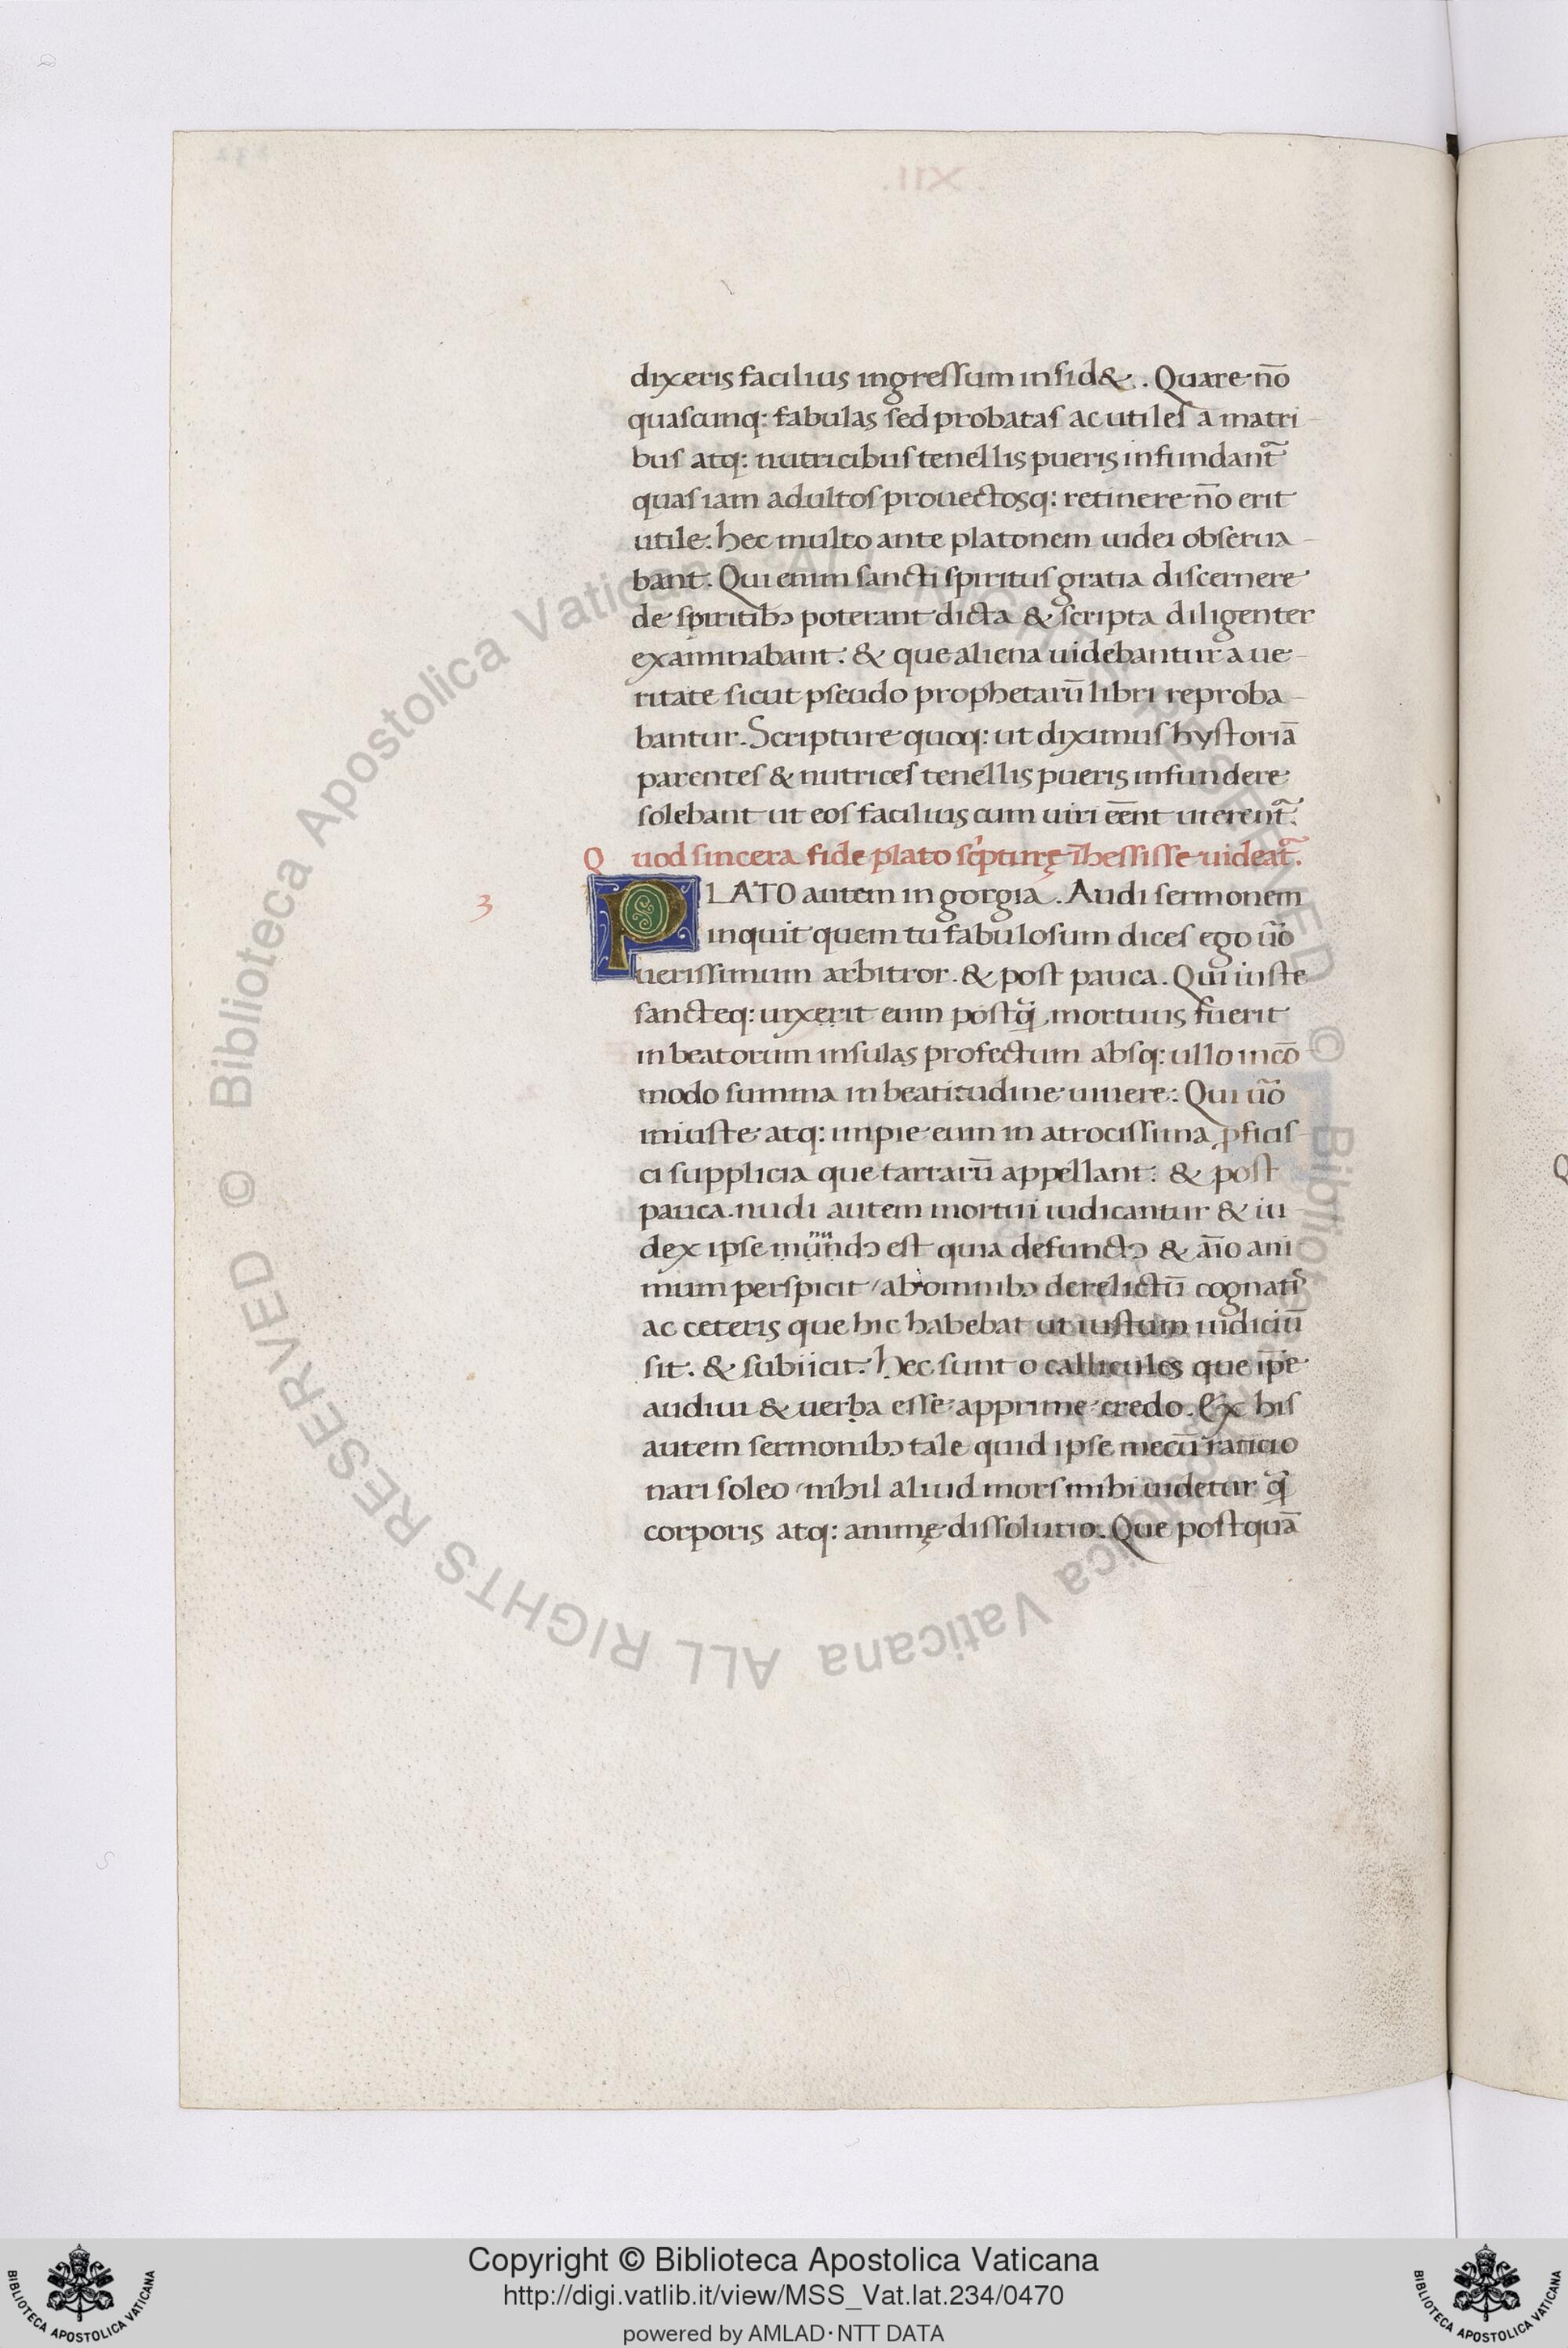 dixeris facilius ingressum insid&. Quare nō
quascunq: fabulas sed probatas ac utiles a matri
bus atq: nutricibus tenellis pueris infundant̃
quas iam adultos prouectosq: retinere nō erit
utile. hec multo ante platonem iudei obserua
bant. Qui enim sancti spiritus gratia discernere
de spiritibꝫ poterant dicta & scripta diligenter
examinabant. & que aliena uidebantur a ue
ritate sicut pseudo prophetarū libri reproba
bantur. Scripture quoq: ut diximus hystoriā
parentes & nutrices tenellis pueris infundere
solebant ut eos facilius cum uiri eēnt uterent̃.
Quod sincera fide plato sc̃pturę īhessisse uideat̃.
3
PLATO autem in gorgia. Audi sermonem
inquit quem tu fabulosum dices ego ūo
uerissimum arbitror. & post pauca. Qui iuste
sancteq: uixerit eum postq̃ mortuus fuerit
in beatorum insulas profectum absq: ullo incō
modo summa in beatitudine uiuere. Qui ūo
iniuste atq: impie eum in atrocissima ꝓficis
ci supplicia que tartarū appellant. & post
pauca. nudi autem mortui iudicantur & iu
dex ipse mūndꝰ est quia defunctꝰ & aīo ani
mum perspicit / ab omnibꝫ derelictū cognatis
ac ceteris que hic habebat ut iustum iudiciū
sit. & subiicit. Hec sunt o callicules que ip̄e
audiui & uerba esse apprime credo. Ex his
autem sermonibꝫ tale quid ipse mecū ratio
nari soleo / nihil aliud mors mihi uidetur q̃
corporis atq: animę dissolutio. Que postquā
Copyright © Biblioteca Apostolica Vaticana
http://digi.vatlib.it/view/MSS_Vat.lat.234/0470
powered by AMLAD·NTT DATA
BIBLIOTECA APOSTOLICA VATICANA
BIBLIOTECA APOSTOLICA VATICANA
© Biblioteca Apostolica Vaticana ALL RIGHTS RESERVED © Biblioteca Apostolica Vaticana ALL RIGHTS RESERVED